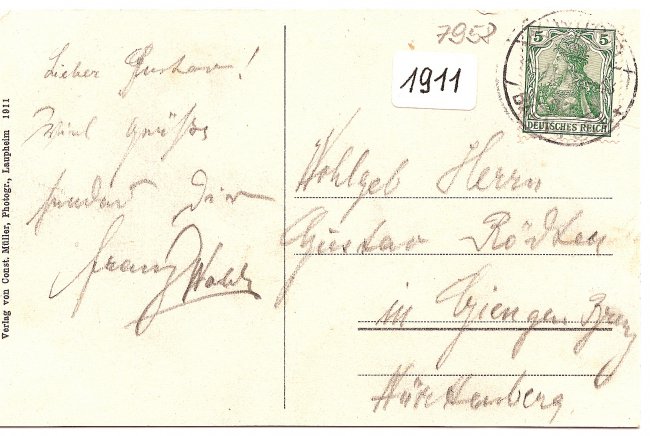 7958
1911
5 5
DEUTSCHES REICH
Lieber Gustav!
Viel Grüße
sendet Dir
Franz
Wohlgeb Herrn
Gustav
in Giengen Brenz
Württemberg.
Verlag von Const. Müller, Photogr., Laupheim 1911